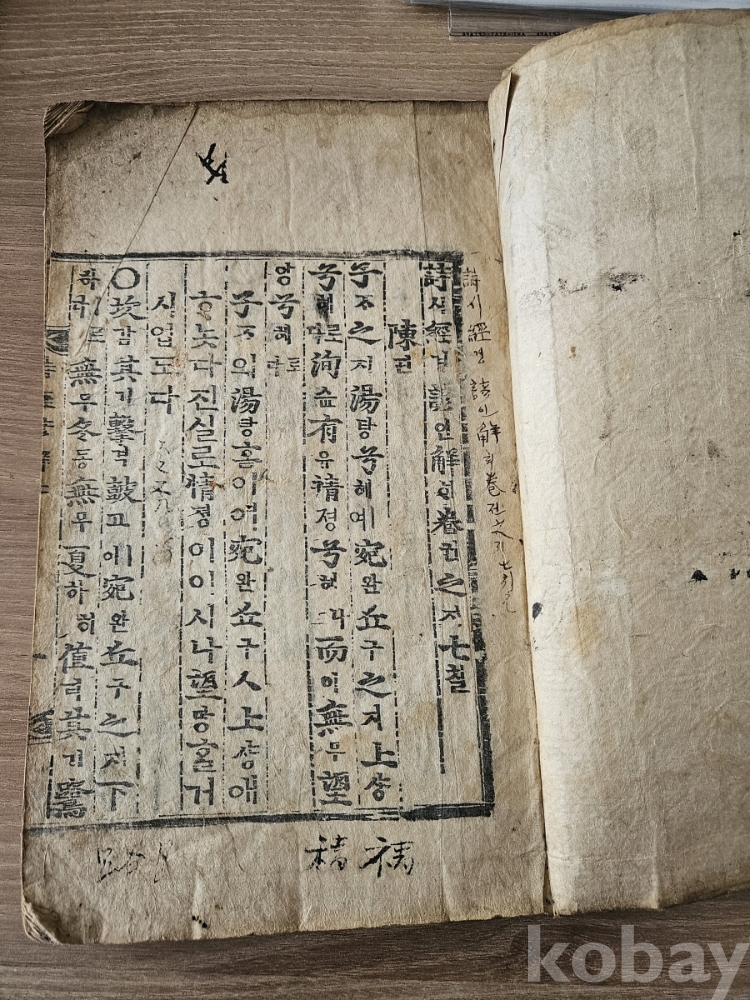 詩시經경諺언解ᄒᆡ卷권之지七칠
詩시經경諺언解ᄒᆡ卷권之지七칠
陳딘
子ᄌᆞ之지湯탕兮혜여宛완丘구之지上샹
兮혜로다洵슌有유情졍兮혜나而이無무望
망兮혜로다
子ᄌᆞ의湯탕홈이여宛완丘구ㅅ上샹애
ᄒᆞ놋다진실로情졍이이시나望망홀거
시업도다
○坎감其기擊격鼓고에宛완丘구之지下
無무冬동無무夏하히値티其기鷺
kobay